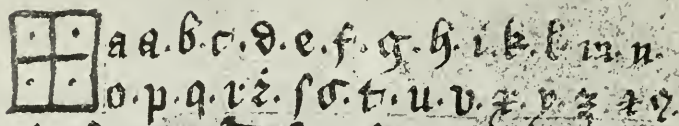 a a. b. c. d. e. f. g. h. i. k. l m. n.
o. p. q. r ż. ſ s. t. u. v. x. y. z